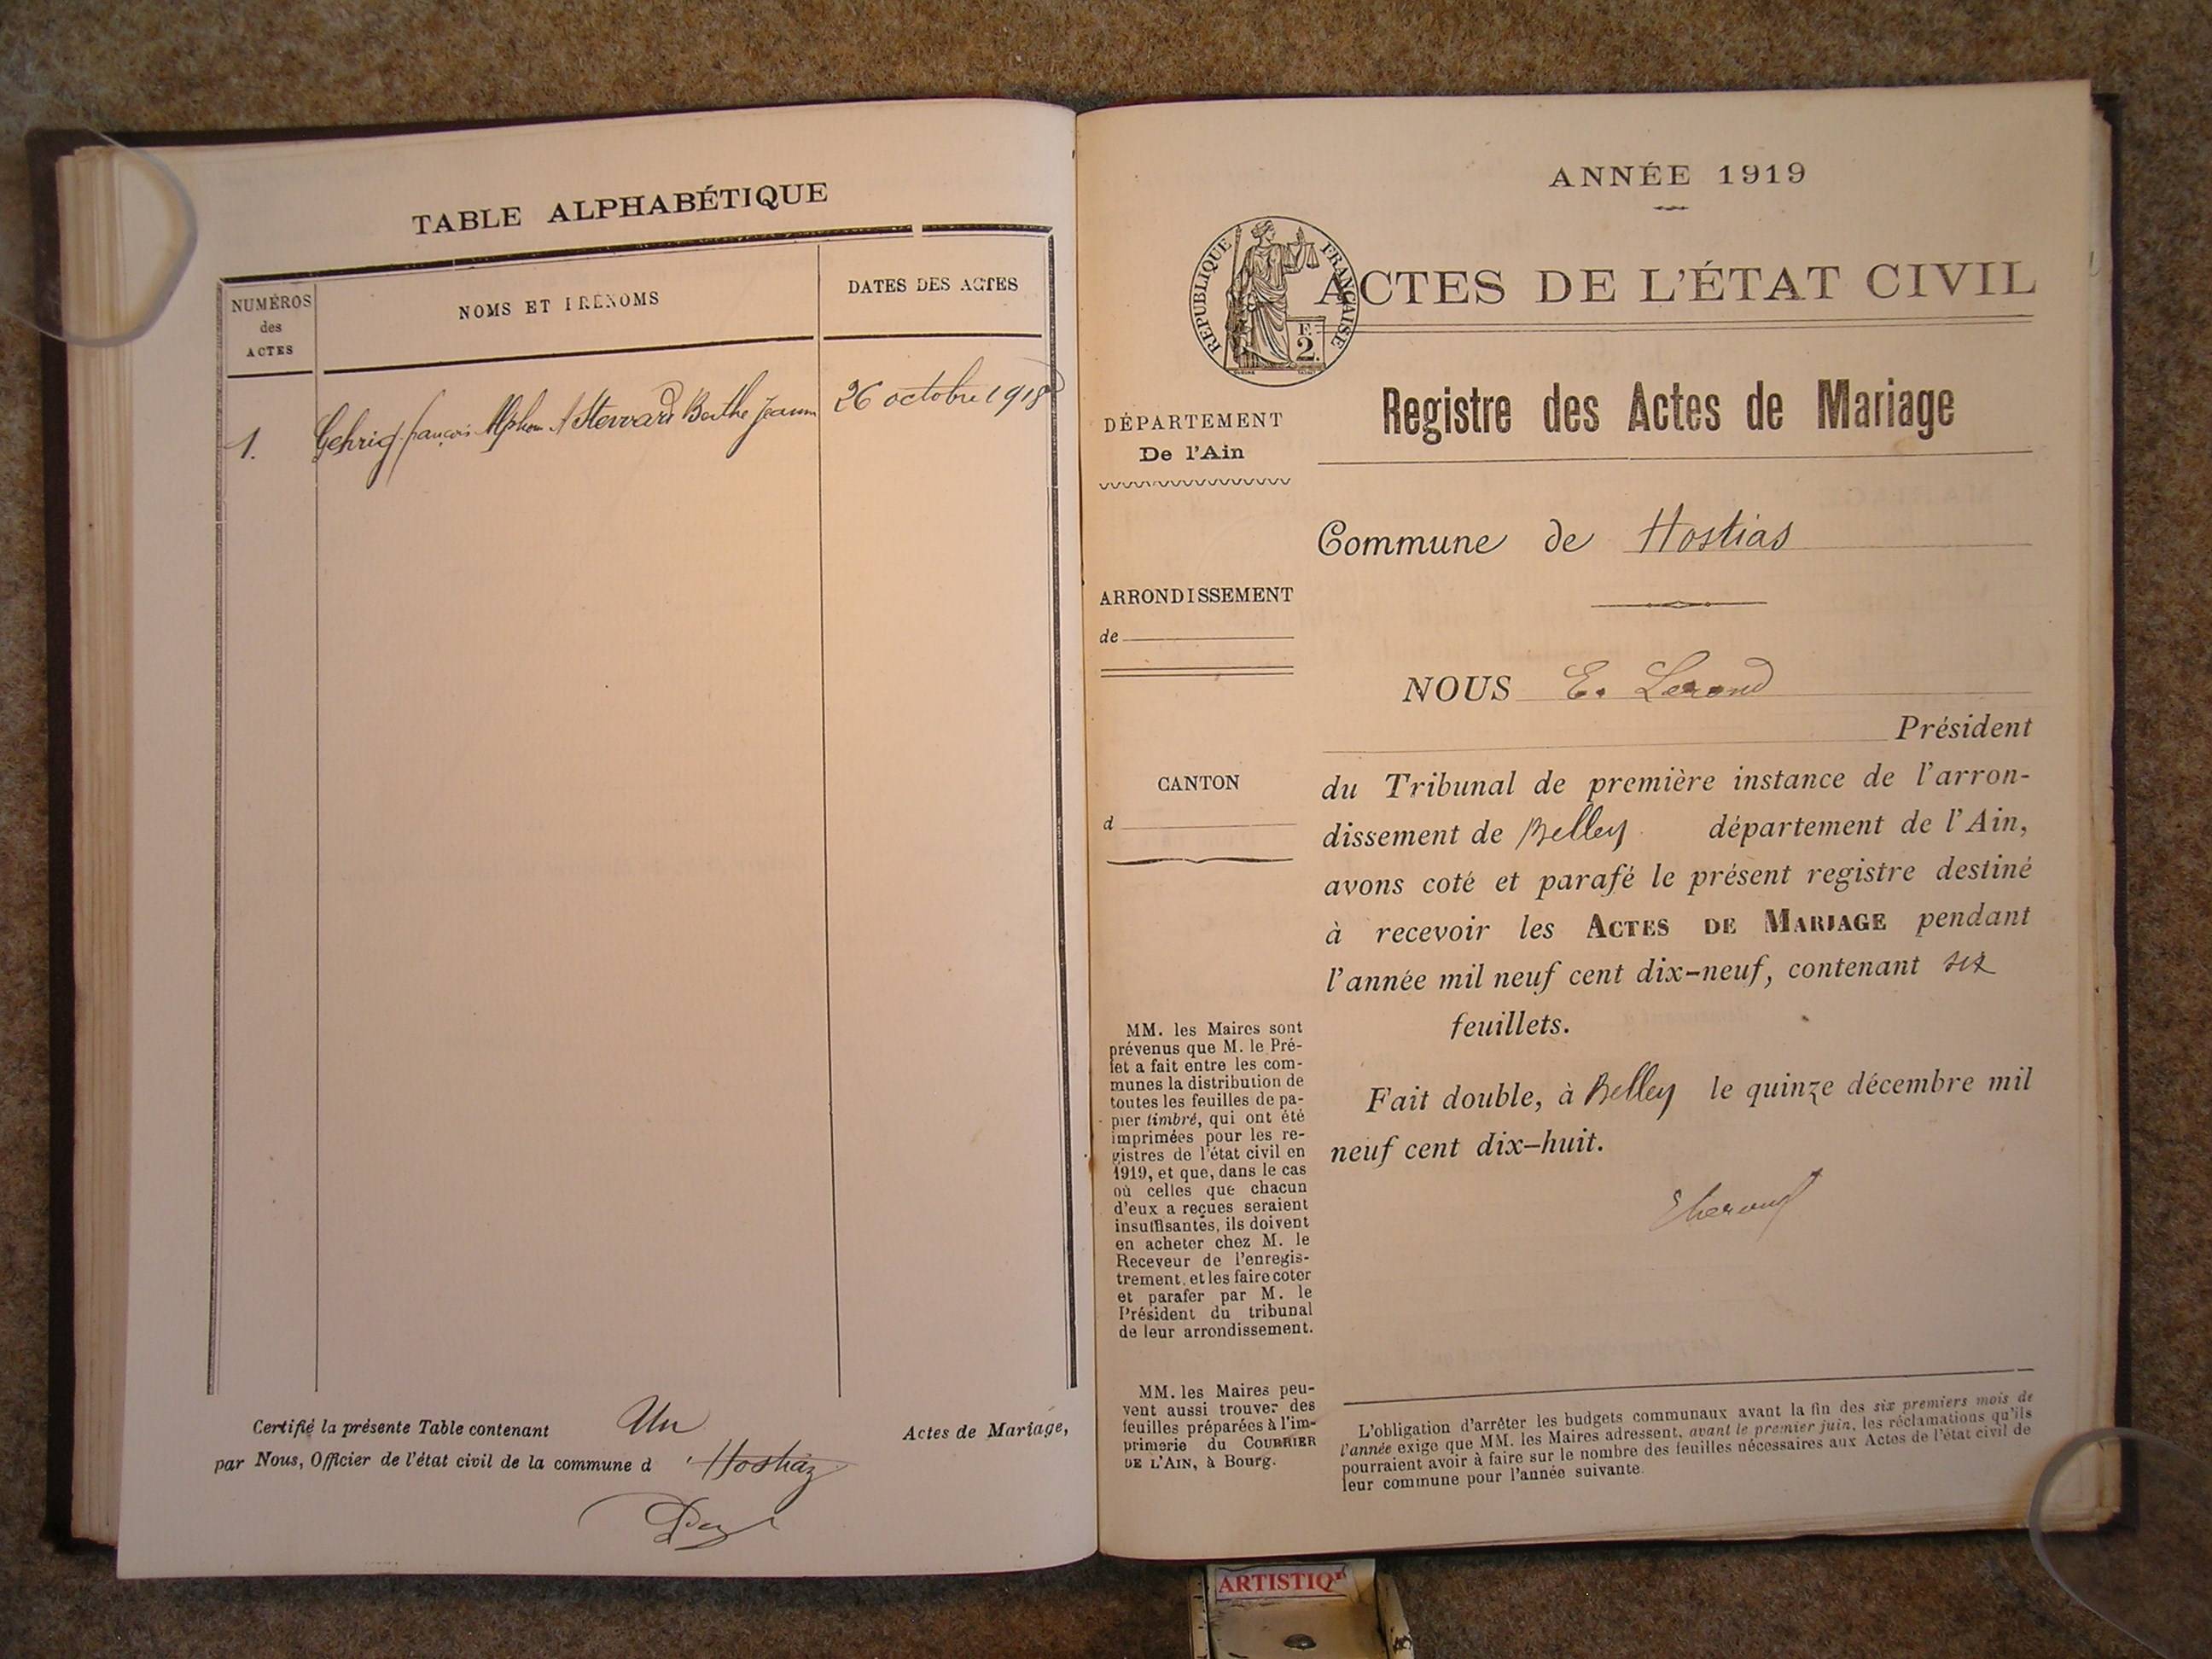 TABLE ALPHABÉTIQUE
NUMÉROS
des
ACTES
NOMS ET PRÉNOMS
DATES DES ACTES
1. Gehrig françois Alphon Berthe Jeanne 26 octobre 1918
Certifié la présente Table contenant Un Actes de Mariage,
par Nous, Officier de l'état civil de la commune d'Hostiaz
ANNÉE 1919
RÉPUBLIQUE FRANÇAISE
F.
2.
ACTES DE L'ÉTAT CIVIL
Registre des Actes de Mariage
DÉPARTEMENT
De l'Ain
Commune de Hostias
ARRONDISSEMENT
de
NOUS E. Lerond
Président
CANTON
d
du Tribunal de première instance de l'arron-
dissement de Belley département de l'Ain,
avons coté et parafé le présent registre destiné
à recevoir les ACTES DE MARIAGE pendant
l'année mil neuf cent dix-neuf, contenant six
feuillets.
Fait double, à Belley le quinze décembre mil
neuf cent dix-huit.
MM. les Maires sont
prévenus que M. le Pré-
fet a fait entre les com-
munes la distribution de
toutes les feuilles de pa-
pier timbré, qui ont été
imprimées pour les re-
gistres de l'état civil en
1919, et que, dans le cas
où celles que chacun
d'eux a reçues seraient
insuffisantes, ils doivent
en acheter chez M. le
Receveur de l'enregis-
trement, et les faire coter
et parafer par M. le
Président du tribunal
de leur arrondissement.
MM. les Maires peu-
vent aussi trouver des
feuilles préparées à l'im-
primerie du COURRIER
DE L'AIN, à Bourg.
L'obligation d'arrêter les budgets communaux avant la fin des six premiers mois de
l'année exige que MM. les Maires adressent, avant le premier juin, les réclamations qu'ils
pourraient avoir à faire sur le nombre des feuilles nécessaires aux Actes de l'état civil de
leur commune pour l'année suivante.
ARTISTIQ